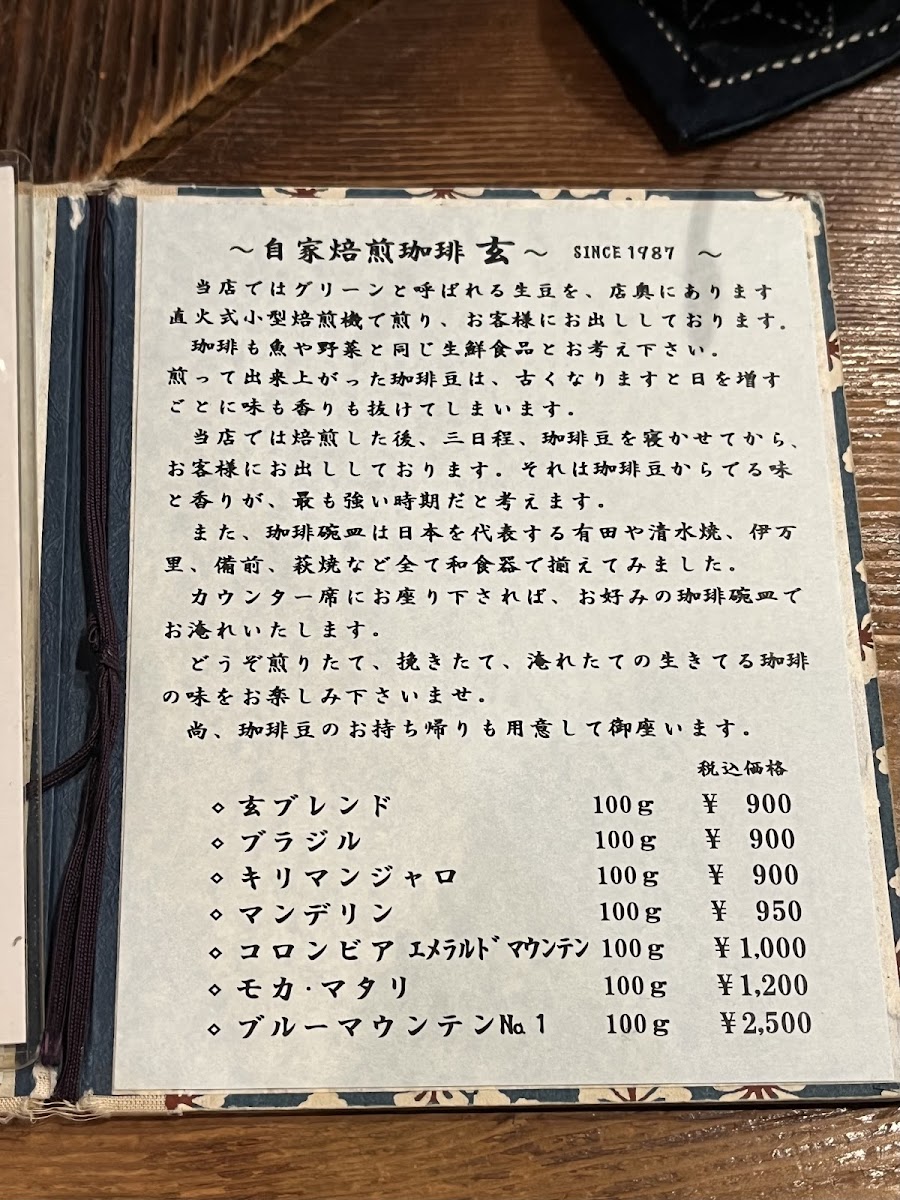 ～自家焙煎珈琲 玄～ SINCE 1987 ～
当店ではグリーンと呼ばれる生豆を、店奥にあります
直火式小型焙煎機で煎り、お客様にお出ししております。
珈琲も魚や野菜と同じ生鮮食品とお考え下さい。
煎って出来上がった珈琲豆は、古くなりますと日を増す
ごとに味も香りも抜けてしまいます。
当店では焙煎した後、三日程、珈琲豆を寝かせてから、
お客様にお出ししております。それは珈琲豆からでる味
と香りが、最も強い時期だと考えます。
また、珈琲碗皿は日本を代表する有田や清水焼、伊万
里、備前、萩焼など全て和食器で揃えてみました。
カウンター席にお座り下されば、お好みの珈琲碗皿で
お淹れいたします。
どうぞ煎りたて、挽きたて、淹れたての生きてる珈琲
の味をお楽しみ下さいませ。
尚、珈琲豆のお持ち帰りも用意して御座います。
税込価格
◇ 玄ブレンド 100g ¥ 900
◇ ブラジル 100g ¥ 900
◇ キリマンジャロ 100g ¥ 900
◇ マンデリン 100g ¥ 950
◇ コロンビア エメラルドマウンテン 100g ¥1,000
◇ モカ・マタリ 100g ¥1,200
◇ ブルーマウンテン№1 100g ¥2,500